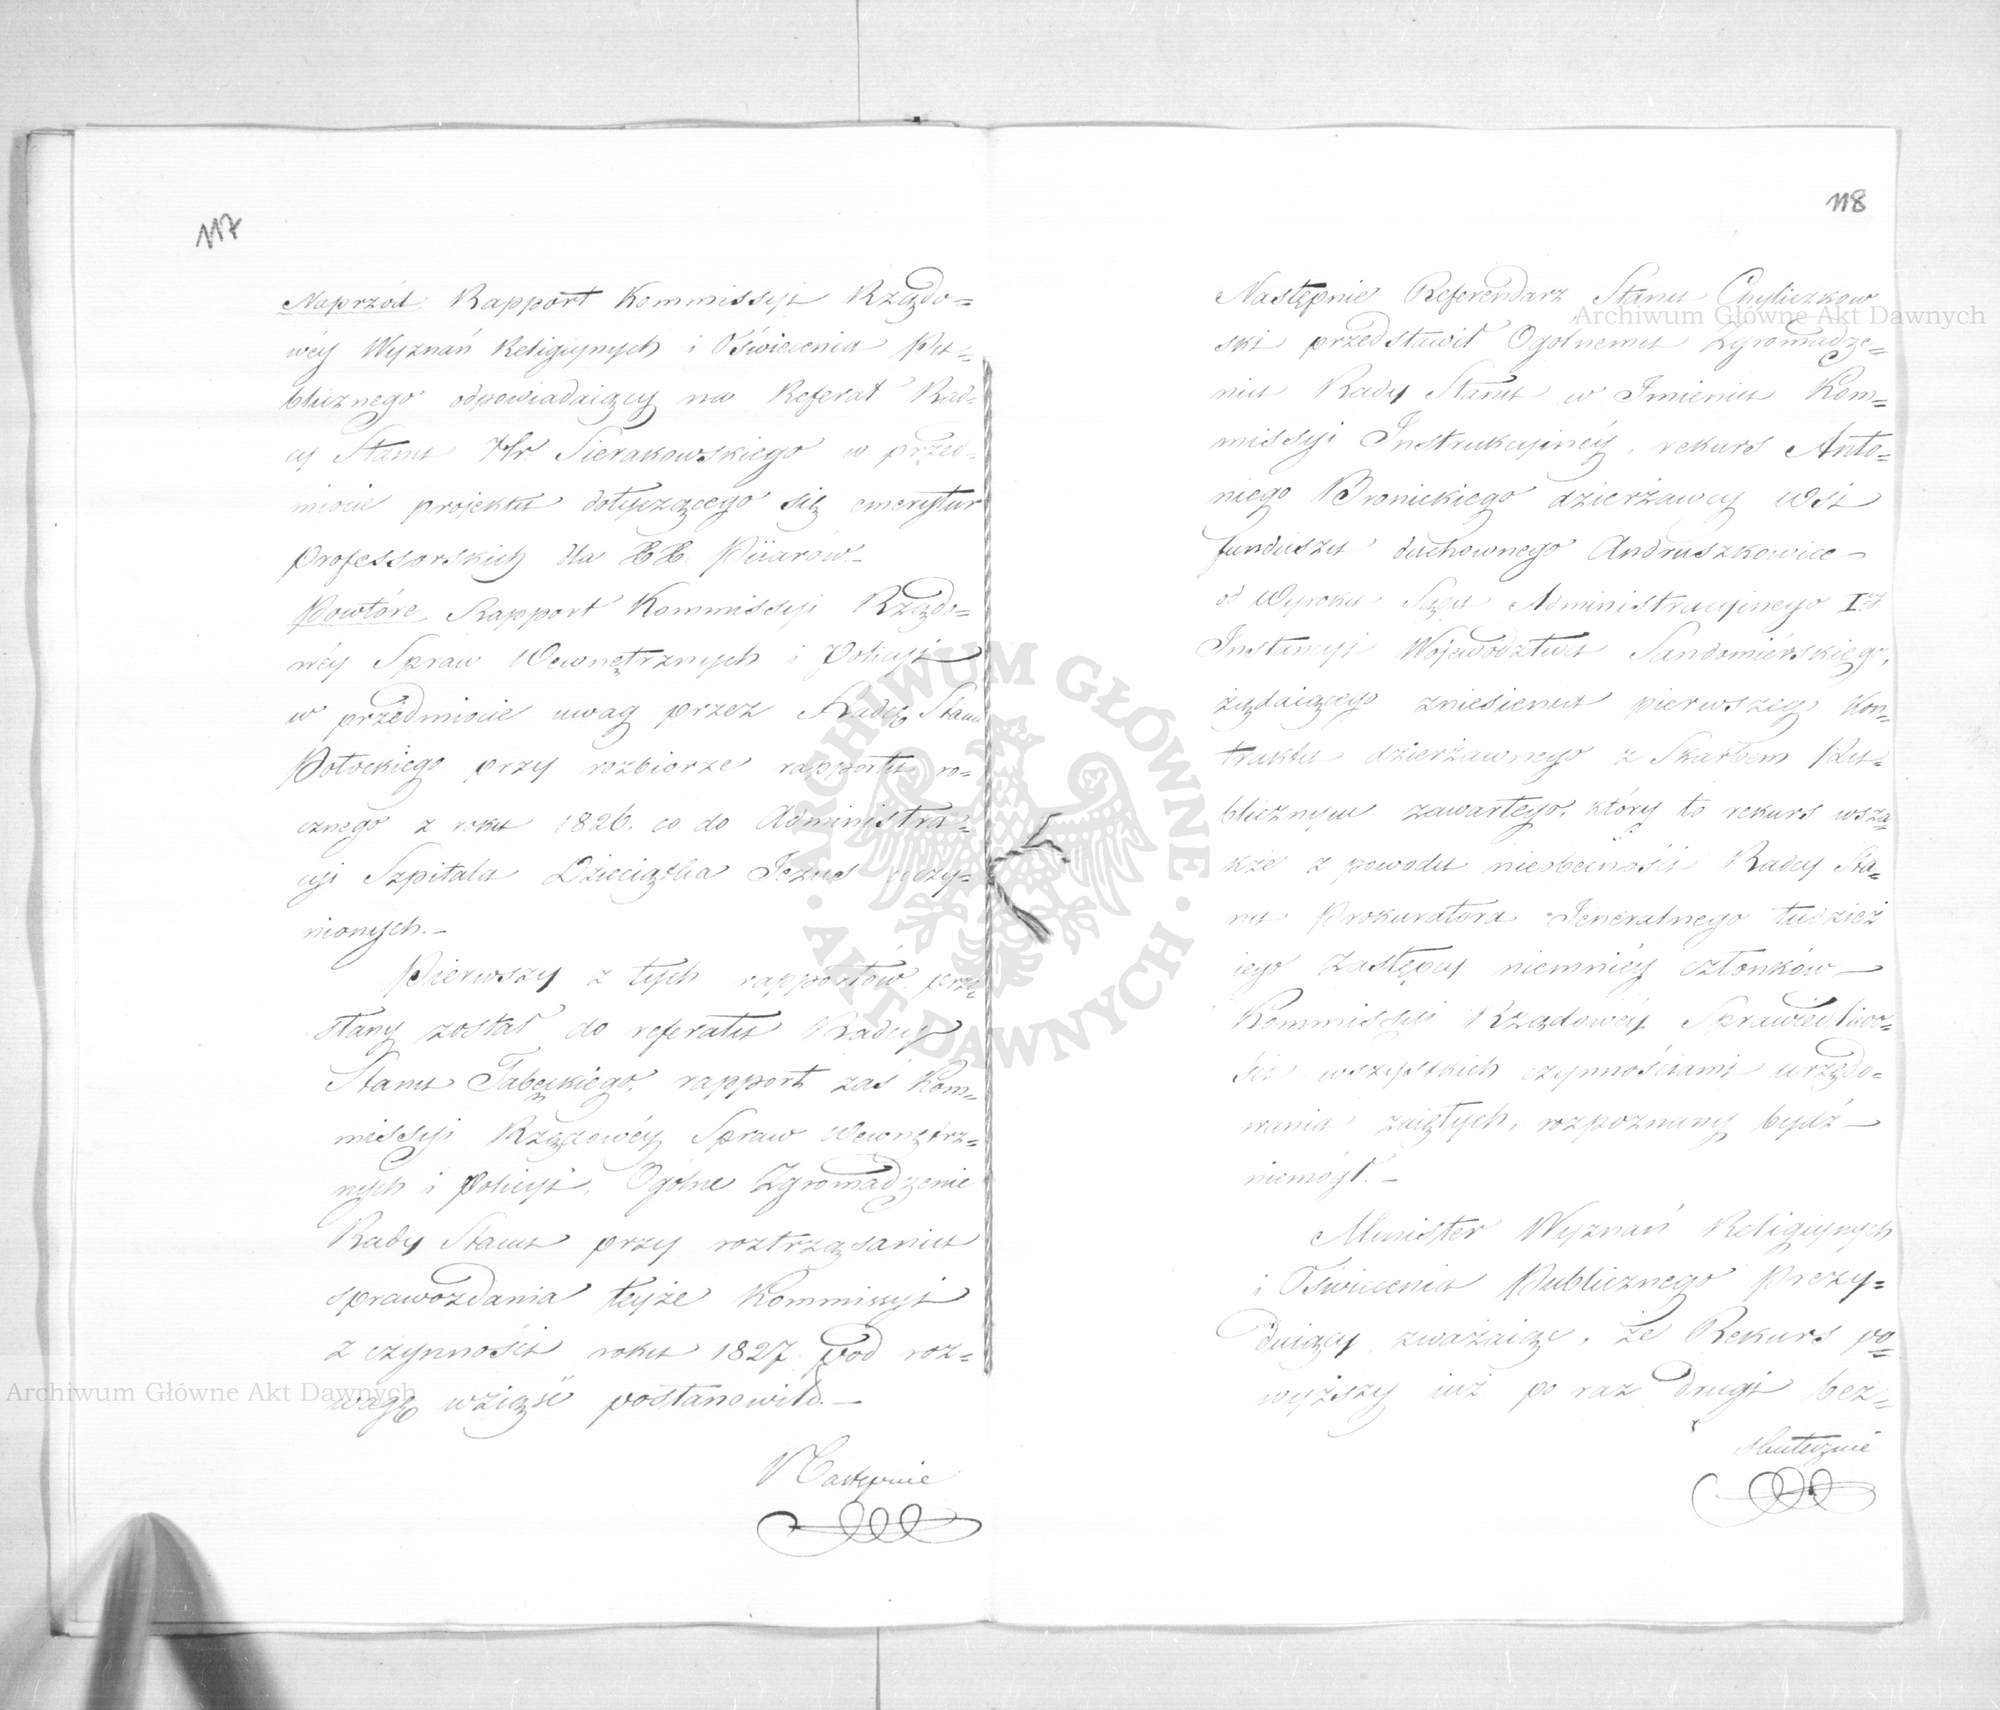 117
Naprzód Rapport Kommissyi Rządo=
wéy Wyznań Religiynych i Oświecenia Pu=
blicznego odpowiadaiący na Referat Rad=
cy Stanu Hr. Sierakowskiego w przed=
miocie projektu dotyczącego się emerytur
Professorskich dla XX. Piiarów.—
Powtóre Rapport Kommissyi Rządo=
wéy Spraw Wewnętrznych i Policyi
w przedmiocie uwag przez Radcę Stanu
Potockiego przy rozbiorze rapportu ro=
cznego z roku 1826. co do Administra=
cyi Szpitala Dzieciątka Jezus uczy=
nionych.—
Pierwszy z tych rapportów, prze=
słany został do referatu Radcy
Stanu Tabęckiego, rapport zaś Kom=
missyi Rządowéy Spraw Wewnętrz=
nych i Policyi, Ogólne Zgromadzenie
Rady Stanu przy roztrząsaniu
sprawozdania teyże Kommissyi
z czynności roku 1827. pod roz=
wagę wziąść postanowiło.—
Następnie
118
Następnie Referendarz Stanu Chyliczkow
ski przedstawił Ogólnemu Zgromadze=
niu Rady Stanu w Imieniu Kom=
missyi Instrukcyinéy, rekurs Anto=
niego Bronickiego dzierżawcy wsi
funduszu duchownego Andruszkowice—
od Wyroku Sądu Administracyinego Iszéy
Instancyi Województwa Sandomiérskiego,
żądaiącego zniesienia pierwszego Kon=
traktu dzierżawnego z Skarbem Pu=
blicznym zawartego, który to rekurs wsza=
kże z powodu nieobecności Radcy Sta=
nu Prokuratora Jeneralnego tudzież
iego Zastępcy niemniéy członków—
Kommissyi Rządowéy Sprawiedliwo=
ści wszystkich czynnościami urzędo=
wania zaiętych, rozpoznany bydź—
niemógł.—
Minister Wyznań Religiynych
i Oświecenia Publicznego Prezy=
duiący, zważaiąc, że Rekurs po=
wyższy iuż po raz drugi bez=
skutecznie
Archiwum Główne Akt Dawnych
Archiwum Główne Akt Dawnych
ARCHIWUM GŁÓWNE AKT DAWNYCH